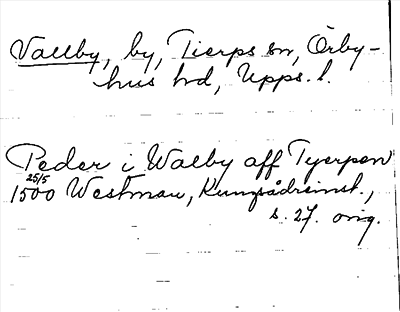 Vallby, by, Tierps sn, Örby-
hus hd, Upps. l.
Peder i Walby aff Tyerpen
25/5
1500 Westman, Kungsådreinst.,
s. 27. orig.